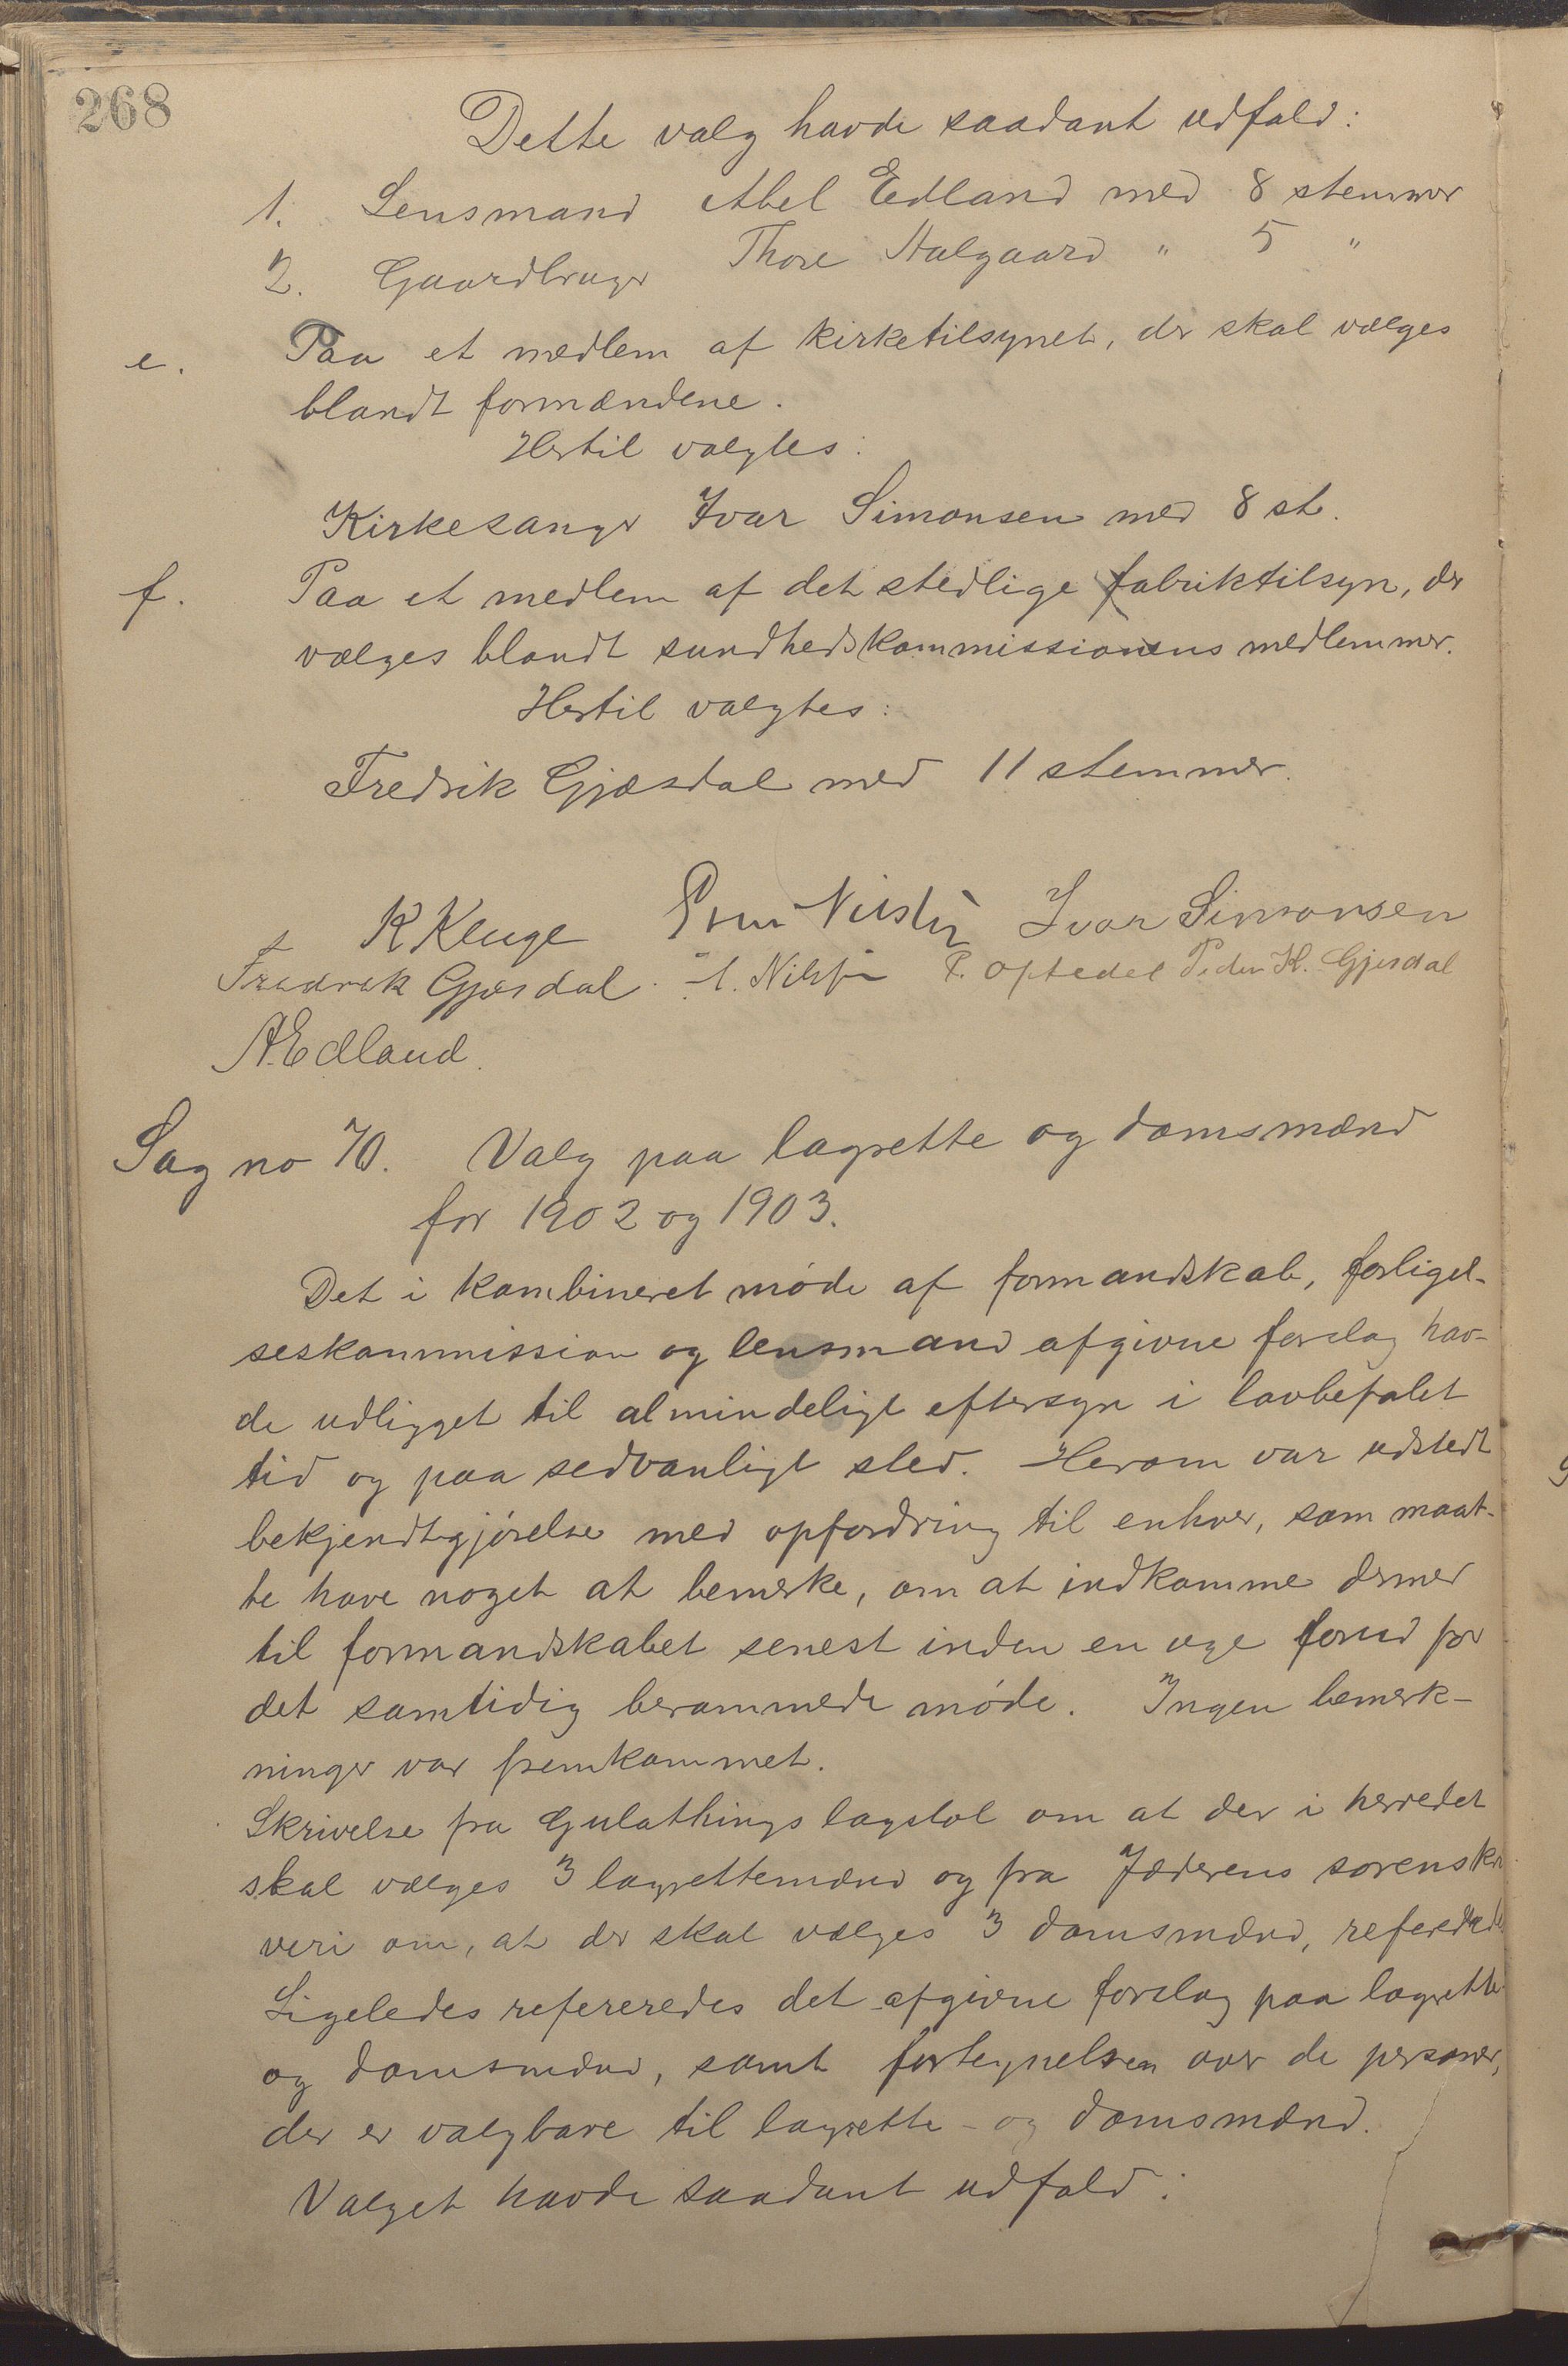 268
Dette valg havde saadant udfald:
1. Lensmand Abel Edland med 8 stemmer
2. Gaardbruger Thore Aalgaard " 5 "
e. Paa et medlem af kirketilsynet, der skal vælges
blandt formændene.
Hertil valgtes:
Kirkesanger Ivar Simonsen med 8 st.
f. Paa et medlem af det stedlige fabriktilsyn, der
vælges blandt sundhedskommissionens medlemmer.
Hertil valgtes:
Fredrik Gjæsdal med 11 stemmer.
K Kluge Ivar Simonsen
Fredrek Gjæsdal. P. Optedal Peder K. Gjesdal
A. Edland.
Sag no 70. Valg paa lagrette og domsmænd
for 1902 og 1903.
Det i kombineret møde af formandskab, forligel-
seskommission og lensmand afgivne forslag hav-
de udligget til almindeligt eftersyn i lovbefalet
tid og paa sedvanligt sted. Herom var udstedt
bekjendtgjørelse med opfordring til enhver, som maat-
te have noget at bemerke, om at indkomme dermed
til formandskabet senest inden en uge forud for
det samtidig berammede møde. Ingen bemerk-
ninger var fremkommet.
Skrivelse fra Gulathings lagstol om at der i herredet
skal vælges 3 lagrettemænd og fra Jæderens sorenskri
veri om, at der skal vælges 3 domsmænd, refereredes.
Ligeledes refereredes det afgivne forslag paa lagrette
og domsmænd, samt fortegnelsen over de personer,
der er valgbare til lagrette- og domsmænd.
Valget havde saadant udfald: